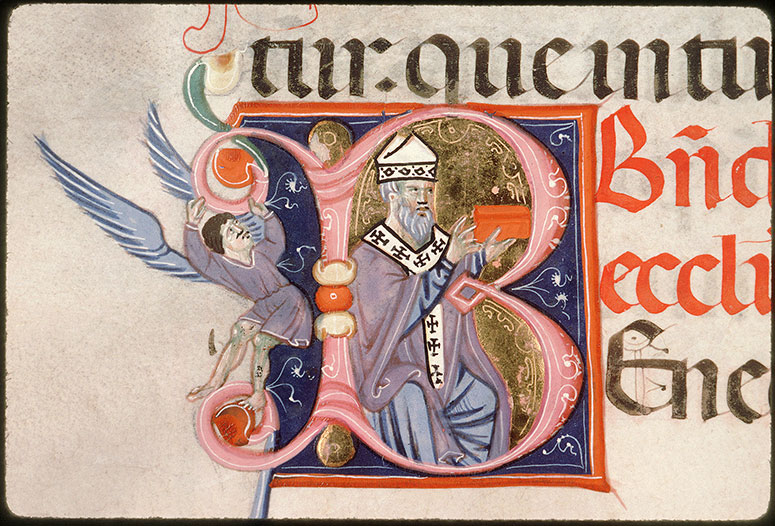 tur: que in tu
Bñd
eccli
Ene